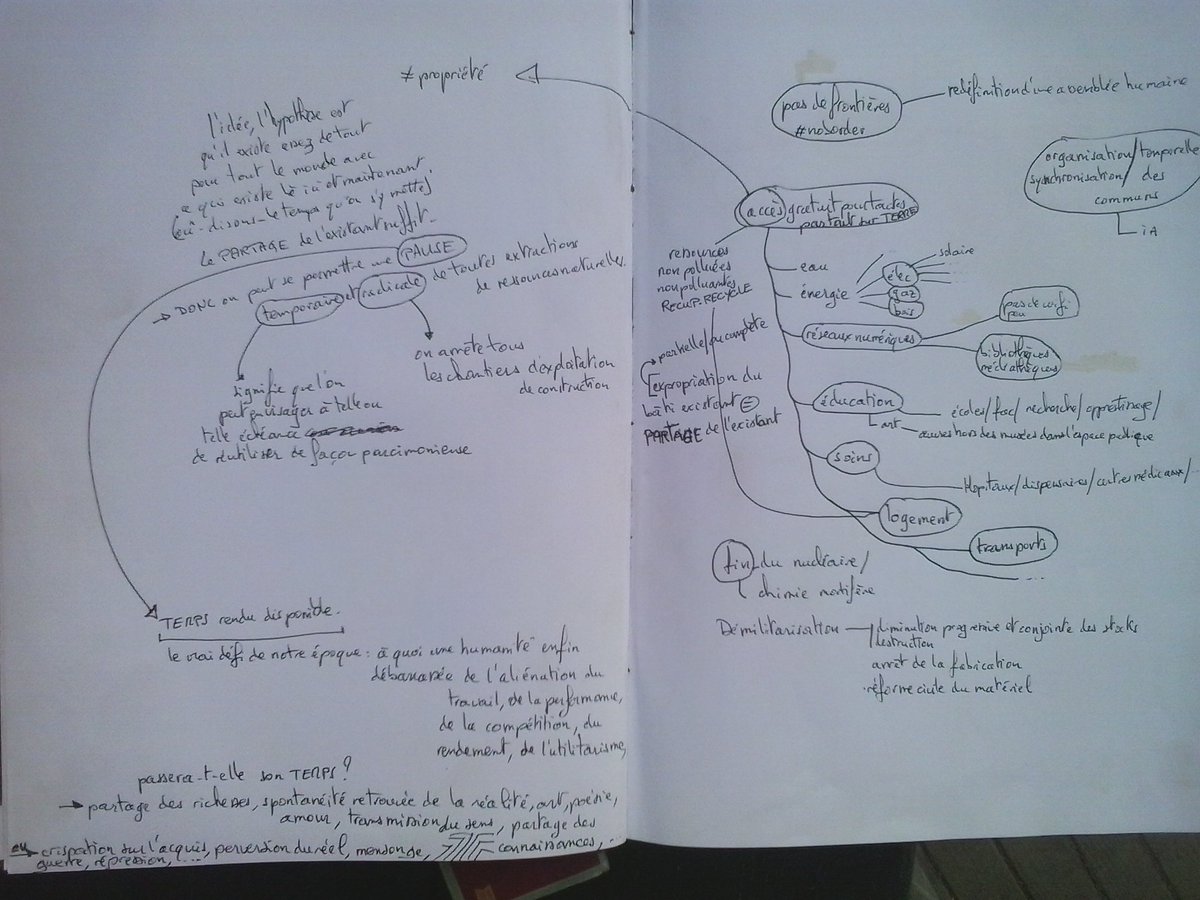 ≠ propriété
l'idée, l'hypothèse est
qu'il existe assez de tout
pour tout le monde avec
ce qui existe là ici et maintenant
disons - le temps qu'on s'y mette)
Le PARTAGE de l'existant suffit.
→ DONC on peut se permettre une PAUSE
temporaire et radicale de toutes extractions
de ressources naturelles.
on arrête tous
les chantiers d'exploitation
de construction
signifie que l'on
peut envisager à telle ou
telle échéance
de réutiliser de façon parcimonieuse
TEMPS rendu disponible.
le vrai défi de notre époque : à quoi une humanité enfin
débarrassée de l'aliénation du
travail, de la performance,
de la compétition, du
rendement, de l'utilitarisme,
passera-t-elle son TEMPS ?
→ partage des richesses, spontanéité retrouvée de la réalité, art, poésie,
amour, transmission du sens, partage des
connaissances, ..
ou → crispation sur l'acquis, perversion du réel, mensonge,
guerre, répression, ...
pas de frontières
#noborder
redéfinition d'une assemblée humaine
organisation/temporelle
synchronisation/ des
communs
iA
accès gratuit pour toutes
partout sur TERRE
ressources
non polluées
non polluantes
RECUP-RECYCLE
eau
énergie
élec
solaire
gaz
bois
réseaux numériques
pas de wifi
peu
bibliothèques
médiathèques
partielle/ou complète
expropriation du
bâti existant =
PARTAGE de l'existant
éducation
écoles/fac/recherche/apprentissage/
art
œuvres hors des musées dans l'espace publique
soins
Hopitaux/dispensaires/centres médicaux/
logement
transports
...
fin du nucléaire/
chimie mortifère
Démilitarisation
diminution progressive et conjointe des stocks
destruction
arrêt de la fabrication
réforme civile du matériel